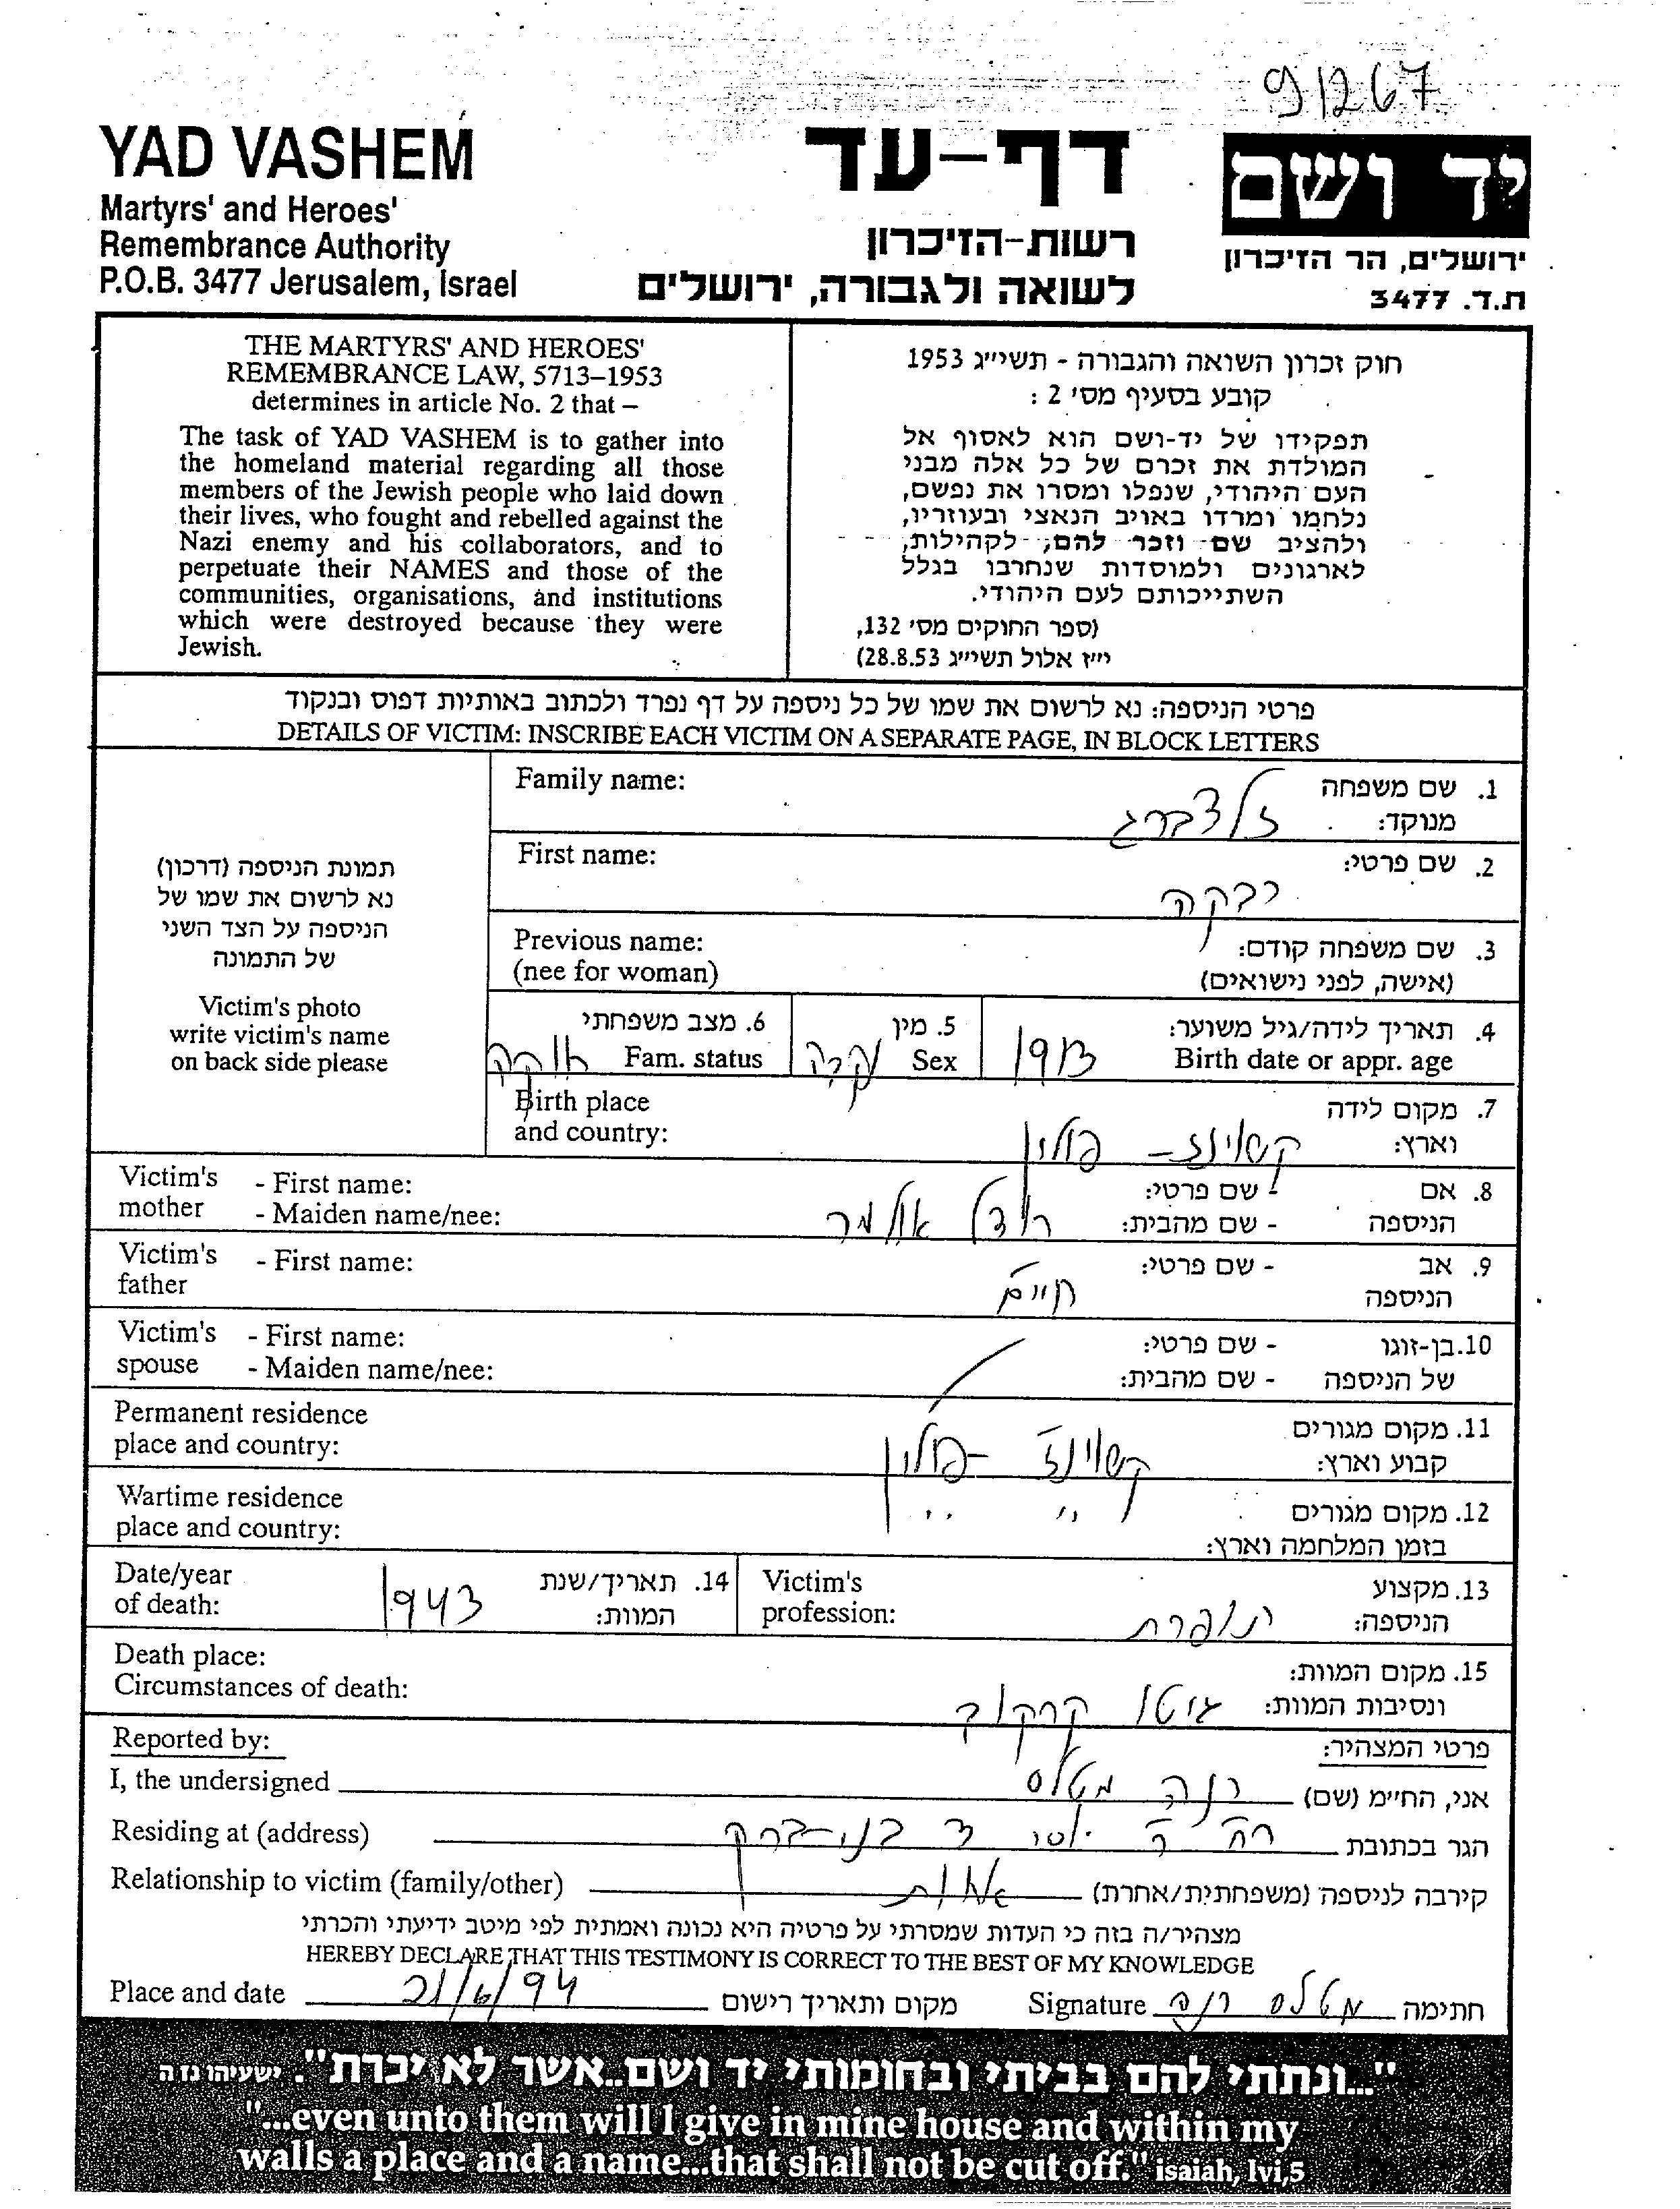 91267
YAD VASHEM
Martyrs' and Heroes'
Remembrance Authority
P.O.B. 3477 Jerusalem, Israel
דף-עד
רשות-הזיכרון
לשואה ולגבורה, ירושלים
יד ושם
ירושלים, הר הזיכרון
ת.ד. 3477
THE MARTYRS' AND HEROES'
REMEMBRANCE LAW, 5713–1953
determines in article No. 2 that –
The task of YAD VASHEM is to gather into
the homeland material regarding all those
members of the Jewish people who laid down
their lives, who fought and rebelled against the
Nazi enemy and his collaborators, and to
perpetuate their NAMES and those of the
communities, organisations, and institutions
which were destroyed because they were
Jewish.
חוק זכרון השואה והגבורה - תשי״ג 1953
קובע בסעיף מס׳ 2 :
תפקידו של יד-ושם הוא לאסוף אל
המולדת את זכרם של כל אלה מבני
העם היהודי, שנפלו ומסרו את נפשם,
נלחמו ומרדו באויב הנאצי ובעוזריו,
ולהציב שם וזכר להם, לקהילות,
לארגונים ולמוסדות שנחרבו בגלל
השתייכותם לעם היהודי.
(ספר החוקים מס׳ 132,
י״ז אלול תשי״ג 28.8.53)
פרטי הניספה: נא לרשום את שמו של כל ניספה על דף נפרד ולכתוב באותיות דפוס ובנקוד
DETAILS OF VICTIM: INSCRIBE EACH VICTIM ON A SEPARATE PAGE, IN BLOCK LETTERS
תמונת הניספה (דרכון)
נא לרשום את שמו של
הניספה על הצד השני
של התמונה
Victim's photo
write victim's name
on back side please
Family name: זלצברג 1. שם משפחה
מנוקד:
First name: רבקה 2. שם פרטי:
Previous name: 3. שם משפחה קודם:
(nee for woman) (אישה, לפני נישואים)
4. תאריך לידה/גיל משוער: 1913
Birth date or appr. age
5. מין נקבה
Sex
6. מצב משפחתי
Fam. status
Birth place 7. מקום לידה
and country: פולין וארץ:
Victim's - First name: 8. אם - שם פרטי:
mother - Maiden name/nee: הניספה - שם מהבית:
Victim's - First name: 9. אב - שם פרטי:
father חיים הניספה
Victim's - First name: 10. בן-זוגו - שם פרטי:
spouse - Maiden name/nee: של הניספה - שם מהבית:
Permanent residence 11. מקום מגורים
place and country: פולין קבוע וארץ:
Wartime residence 12. מקום מגורים
place and country: ״ ״ בזמן המלחמה וארץ:
13. מקצוע
הניספה: תופרת
Victim's
profession:
14. תאריך/שנת
המוות: 1943
Date/year
of death:
Death place: 15. מקום המוות:
Circumstances of death: ונסיבות המוות: גיטו קרקוב
Reported by: פרטי המצהיר:
I, the undersigned אני, החי״מ (שם) רנה מטלס
Residing at (address) הגר בכתובת בני-ברק
Relationship to victim (family/other) קירבה לניספה (משפחתית/אחרת) אחות
מצהיר/ה בזה כי העדות שמסרתי על פרטיה היא נכונה ואמתית לפי מיטב ידיעתי והכרתי
HEREBY DECLARE THAT THIS TESTIMONY IS CORRECT TO THE BEST OF MY KNOWLEDGE
Place and date 21/6/94 מקום ותאריך רישום Signature מטלס רנה חתימה
"...ונתתי להם בביתי ובחומותי יד ושם..אשר לא יכרת". ישעיהו נו ה
"...even unto them will I give in mine house and within my
walls a place and a name...that shall not be cut off." isaiah, lvi,5